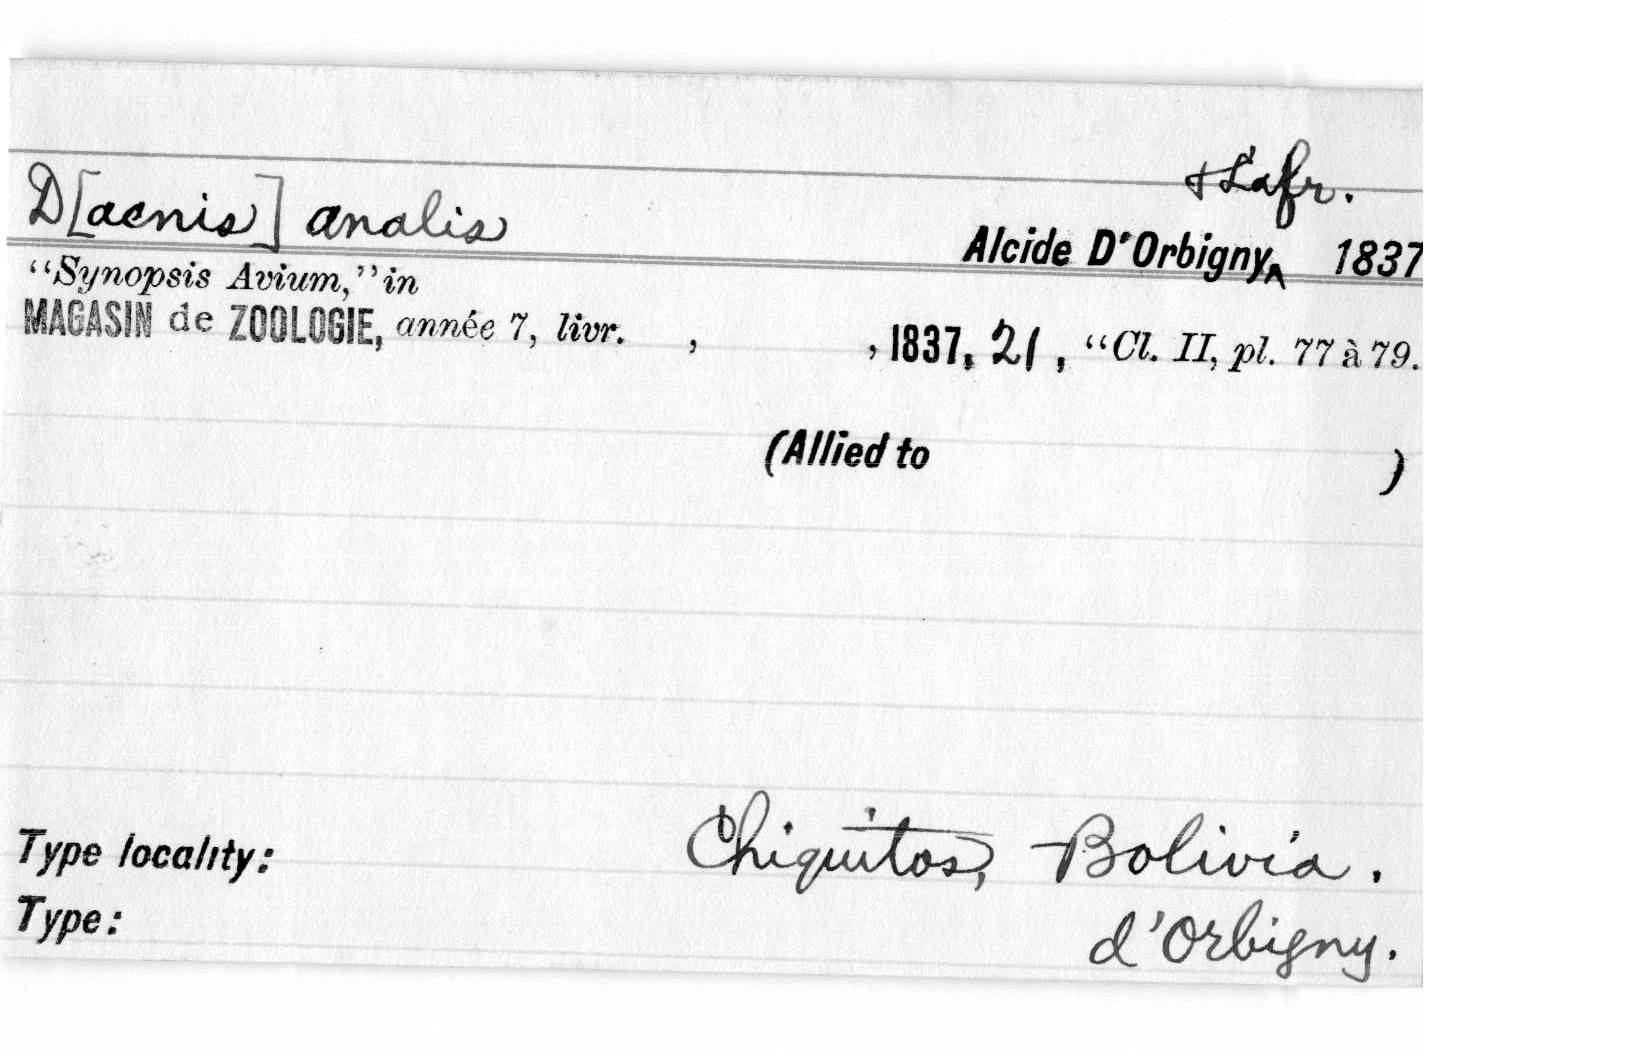 & Lafr.
D[acnis] analis
Alcide D'Orbigny‸ 1837
“Synopsis Avium,” in
MAGASIN de ZOOLOGIE, année 7, livr. , , 1837, 21, “Cl. II, pl. 77 à 79.
(Allied to )
Type locality: Chiquitos, Bolivia.
Type: d'Orbigny.